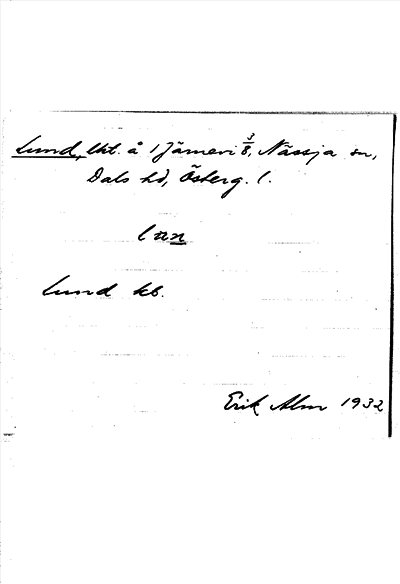 Lund, lht. å 1 Järnevi 3/8, Nässja sn,
Dals hd, Österg. l.
Lund kb.
Erik Alm 1932